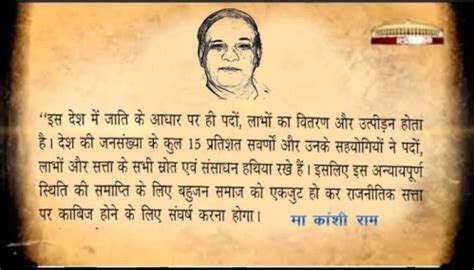 “इस देश में जाति के आधार पर ही पदों, लाभों का वितरण और उत्पीड़न होता
है। देश की जनसंख्या के कुल 15 प्रतिशत सवर्णों और उनके सहयोगियों ने पदों,
लाभों और सत्ता के सभी स्रोत एवं संसाधन हथिया रखे हैं। इसलिए इस अन्यायपूर्ण
स्थिति की समाप्ति के लिए बहुजन समाज को एकजुट हो कर राजनीतिक सत्ता
पर काबिज होने के लिए संघर्ष करना होगा। मा कांशी राम